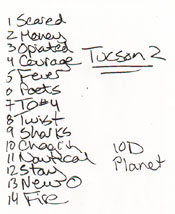 1 Scared
2 Money
3 Opiated
4 Courage
5 Fever
6 Poets
7 TO#4
8 Twist
9 Sharks
10
11 Nautical
12 Stay
13 New O
14 Fire
Tucson 2
10D
Planet